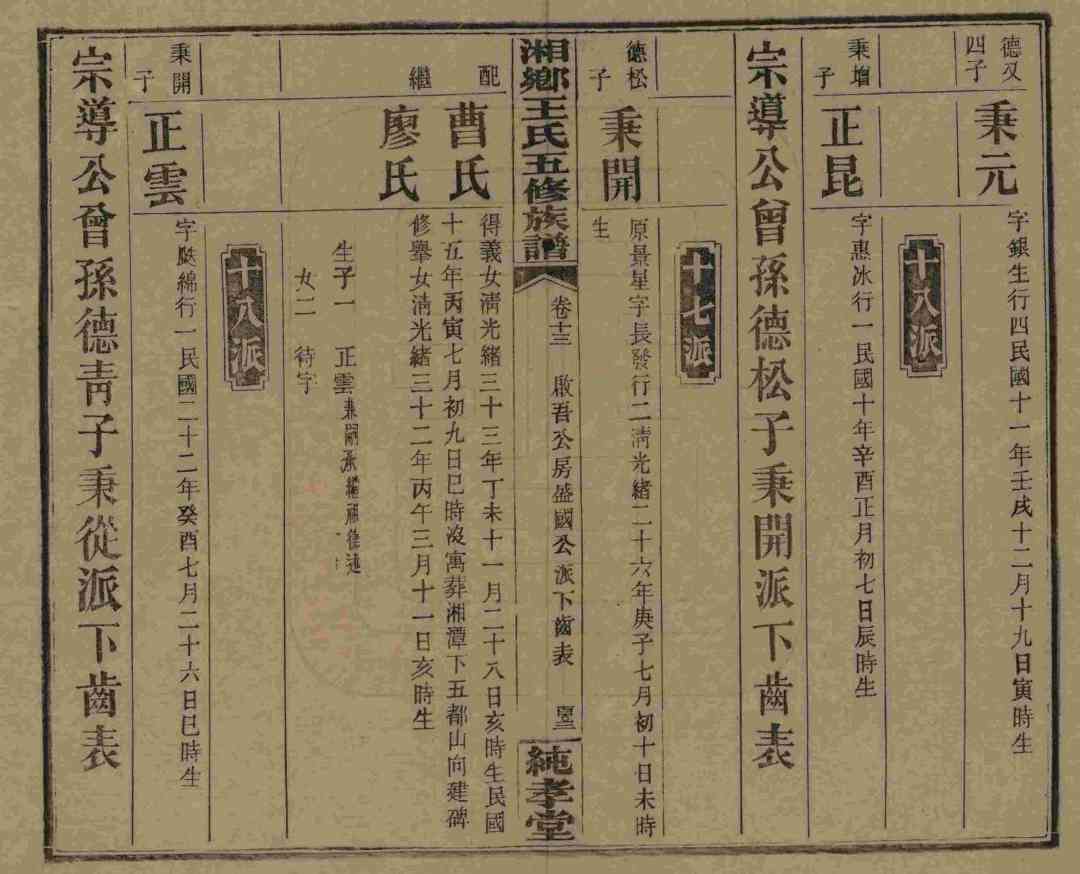 德㕛四子
秉元
字銀生行四民國十一年壬戌十二月十九日寅時生
十八派
秉增子
正昆
字惠冰行一民國十年辛酉正月初七日辰時生
宗導公曾孫德松子秉開派下齒表
十七派
德松子
秉開
原景星字長發行二清光緒二十六年庚子七月初十日未時
生
湘鄉王氏五修族譜
卷十三
啟吾公房盛國公派下齒表
純孝堂
配
曹氏
得義女清光緒三十三年丁未十一月二十八日亥時生民國
十五年丙寅七月初九日巳時沒寓葬湘潭下五都山向建碑
繼
廖氏
修舉女清光緒三十二年丙午三月十一日亥時生
生子一 正雲兼嗣承繼
女二 待字
十八派
秉開子
正雲
字 綿行一民國二十二年癸酉七月二十六日巳時生
宗導公曾孫德青子秉從派下齒表